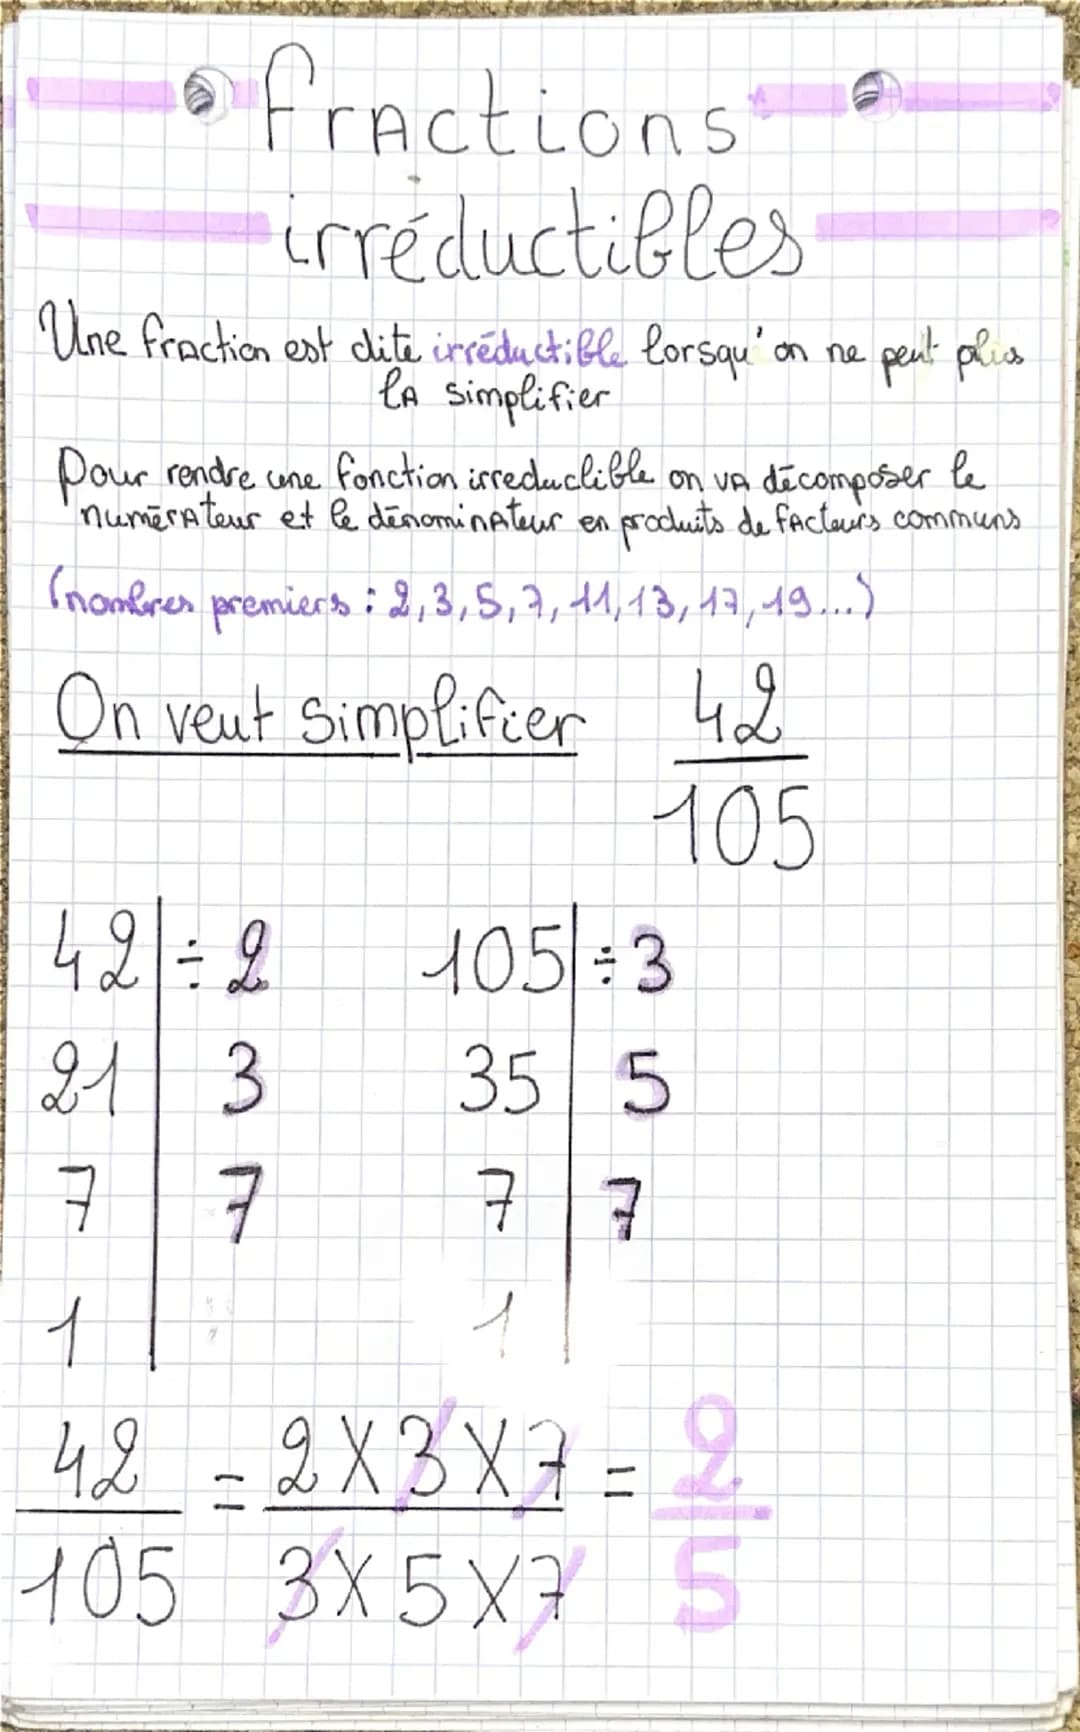 fractions
irréductibles
Une fraction est dite irréductible lorsqu'on ne peut plus
la simplifier
Pour rendre une fonction irreductible on va décomposer le
numérateur et le dénominateur en produits de facteurs communs
(nombres premiers : 2, 3, 5, 7, 11, 13, 17, 19...)
On veut simplifier 42
105
42 ÷ 2 105 ÷ 3
21 3 35 5
7 7 7 7
1 1
42 = 2 X 3 X 7 = 2
105 3 X 5 X 7 5